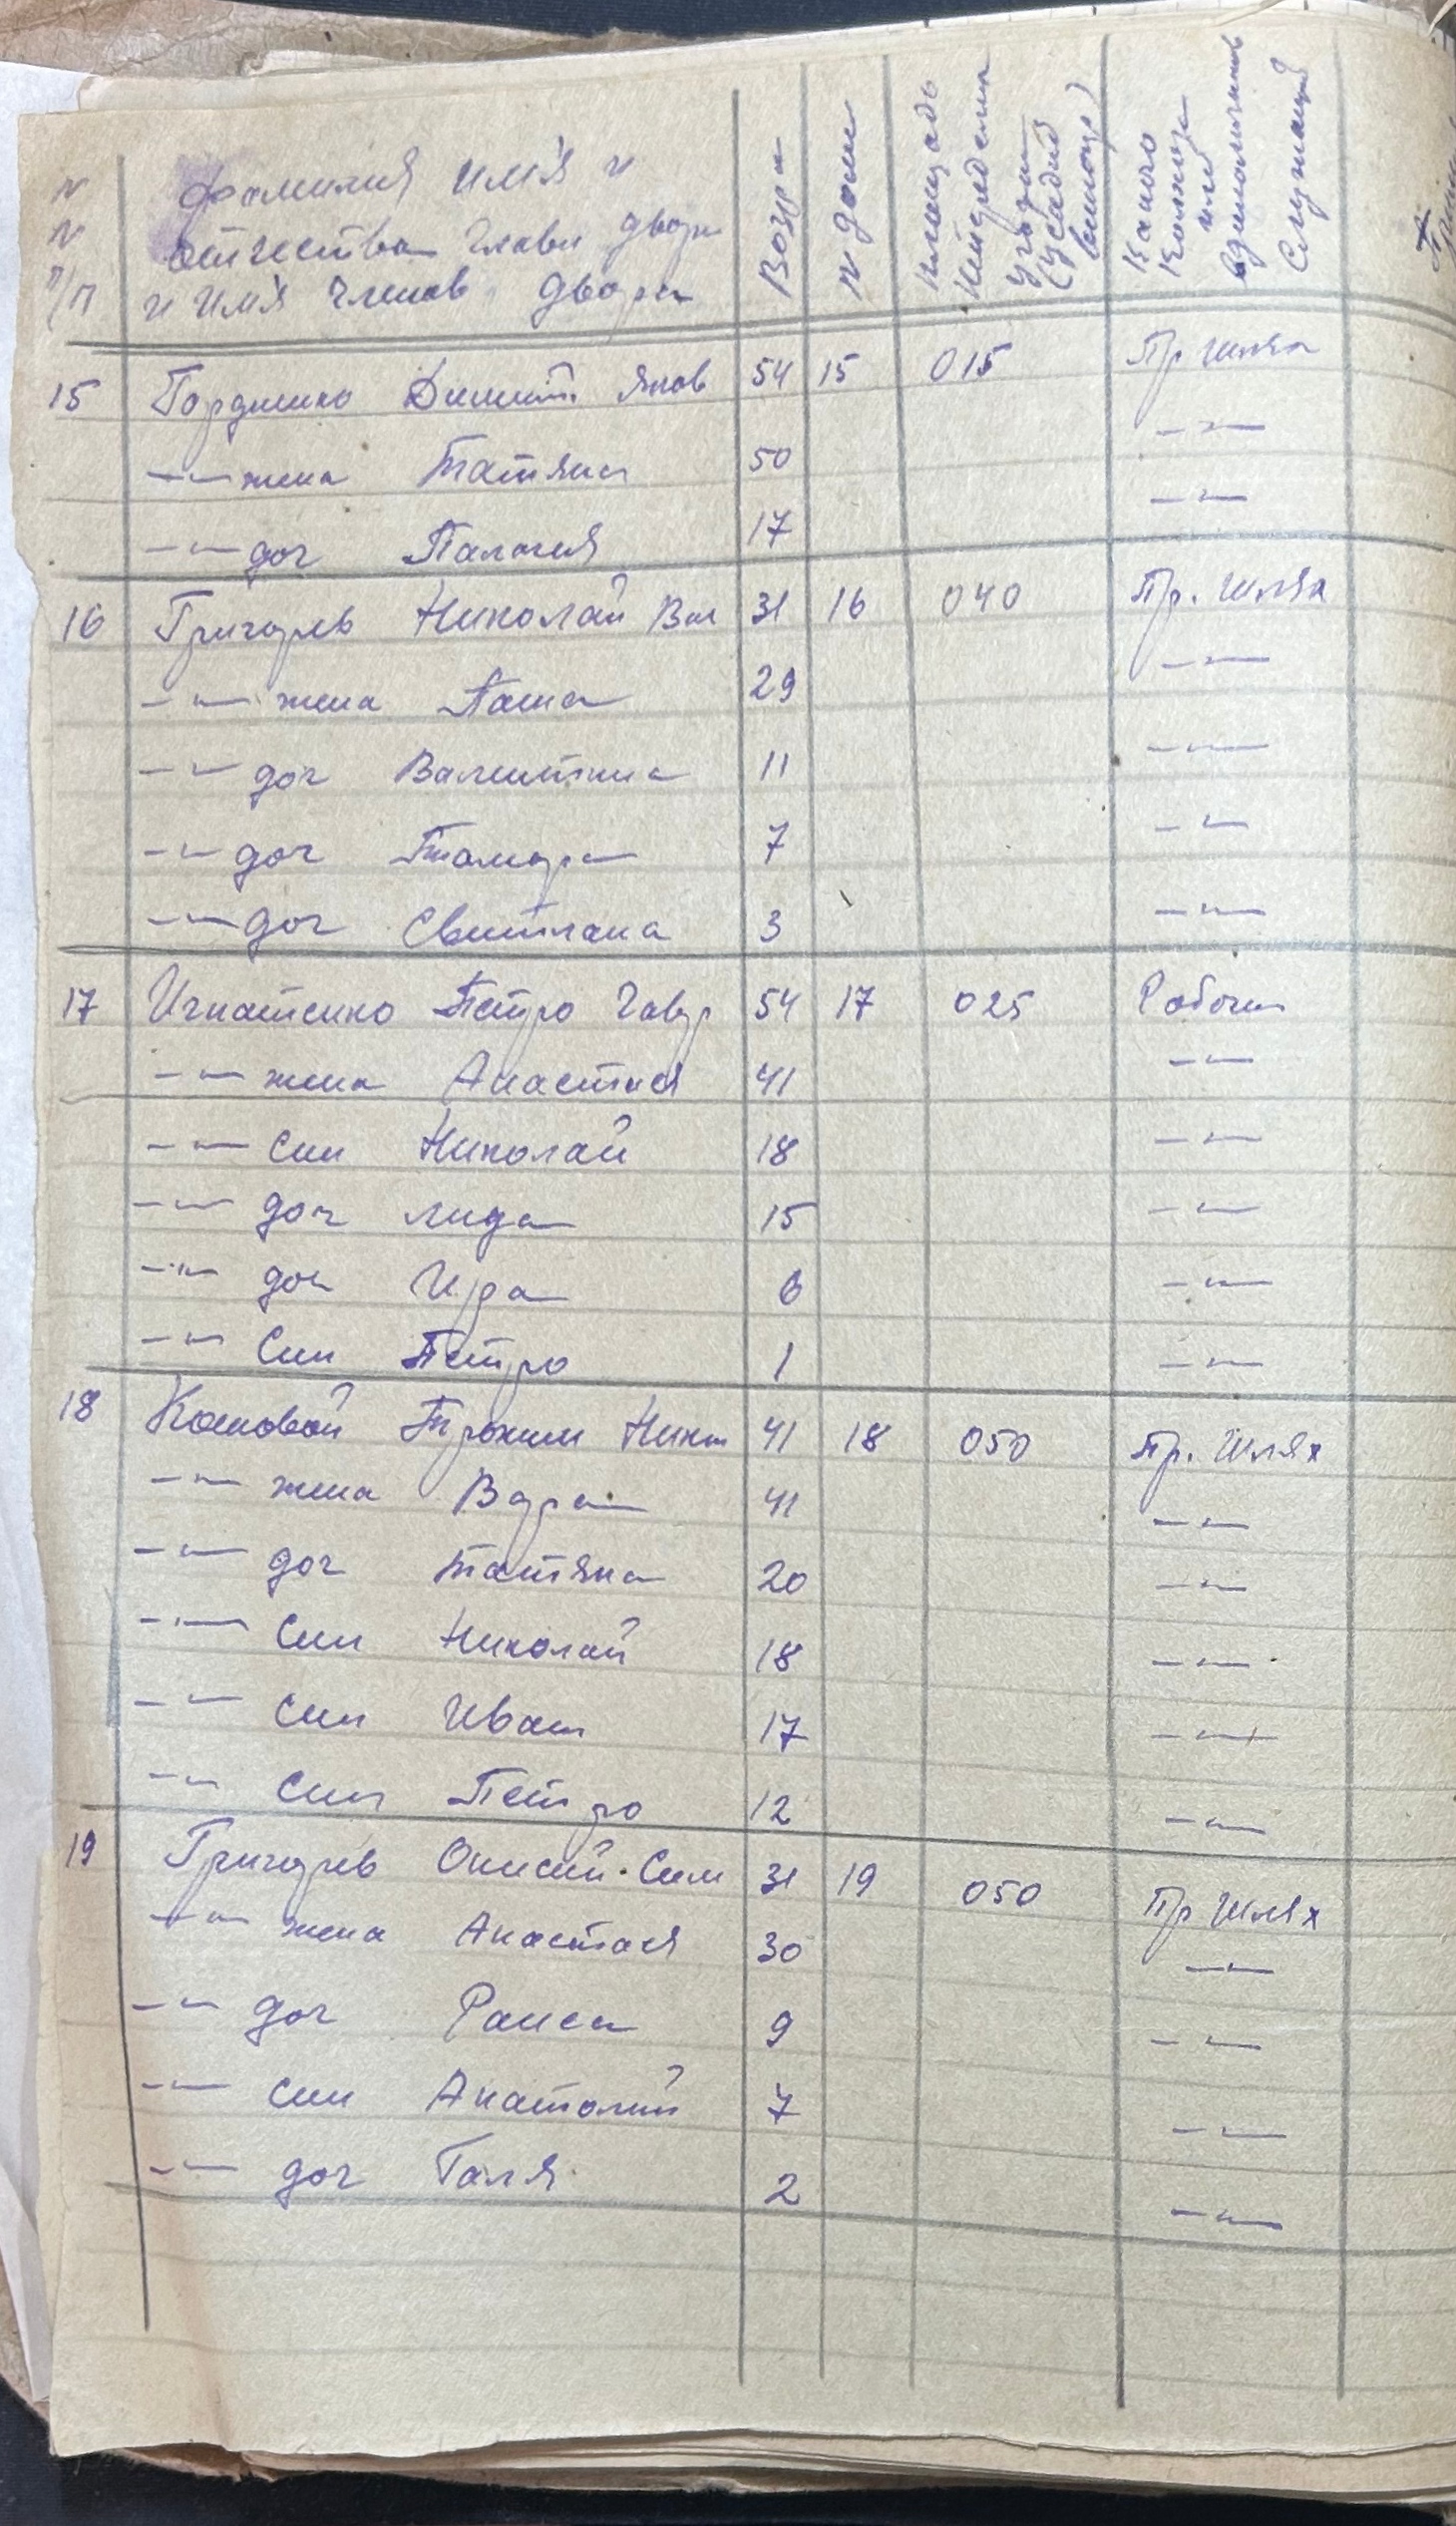 N N п/п фамилия имя и отчества главы двора и имя членов двора Возра N дома площадь Каково колхоза или единоличник Служащий
15 Гордиенко Дмит. Яков 54 15 015 Пр шлях
-"- жена Татяна 50 -"-
-"- доч Палагея 17 -"-
16 Григорев Николай Вас 31 16 040 Пр. шлях
-"- жена Паша 29 -"-
-"- доч Валентина 11 -"-
-"- доч Тамара 7 -"-
-"- доч Светлана 3 -"-
17 Игнатенко Петро Гавр 54 17 025 Рабочи
-"- жена Анастася 41 -"-
-"- син Николай 18 -"-
-"- доч лида 15 -"-
-"- доч Ира 6 -"-
-"- син Петро 1 -"-
18 Кошовой Трохим Никит 41 18 050 пр. Шлях
-"- жена 41 -"-
-"- доч татяна 20 -"-
-"- син Николай 18 -"-
-"- син Иван 17 -"-
-"- син Петро 12 -"-
19 Григорев Онисий Сем 31 19 050 Пр Шлях
-"- жена Анастася 30 -"-
-"- доч Раиса 9 -"-
-"- син Анатолий 7 -"-
-"- доч Галя 2 -"-